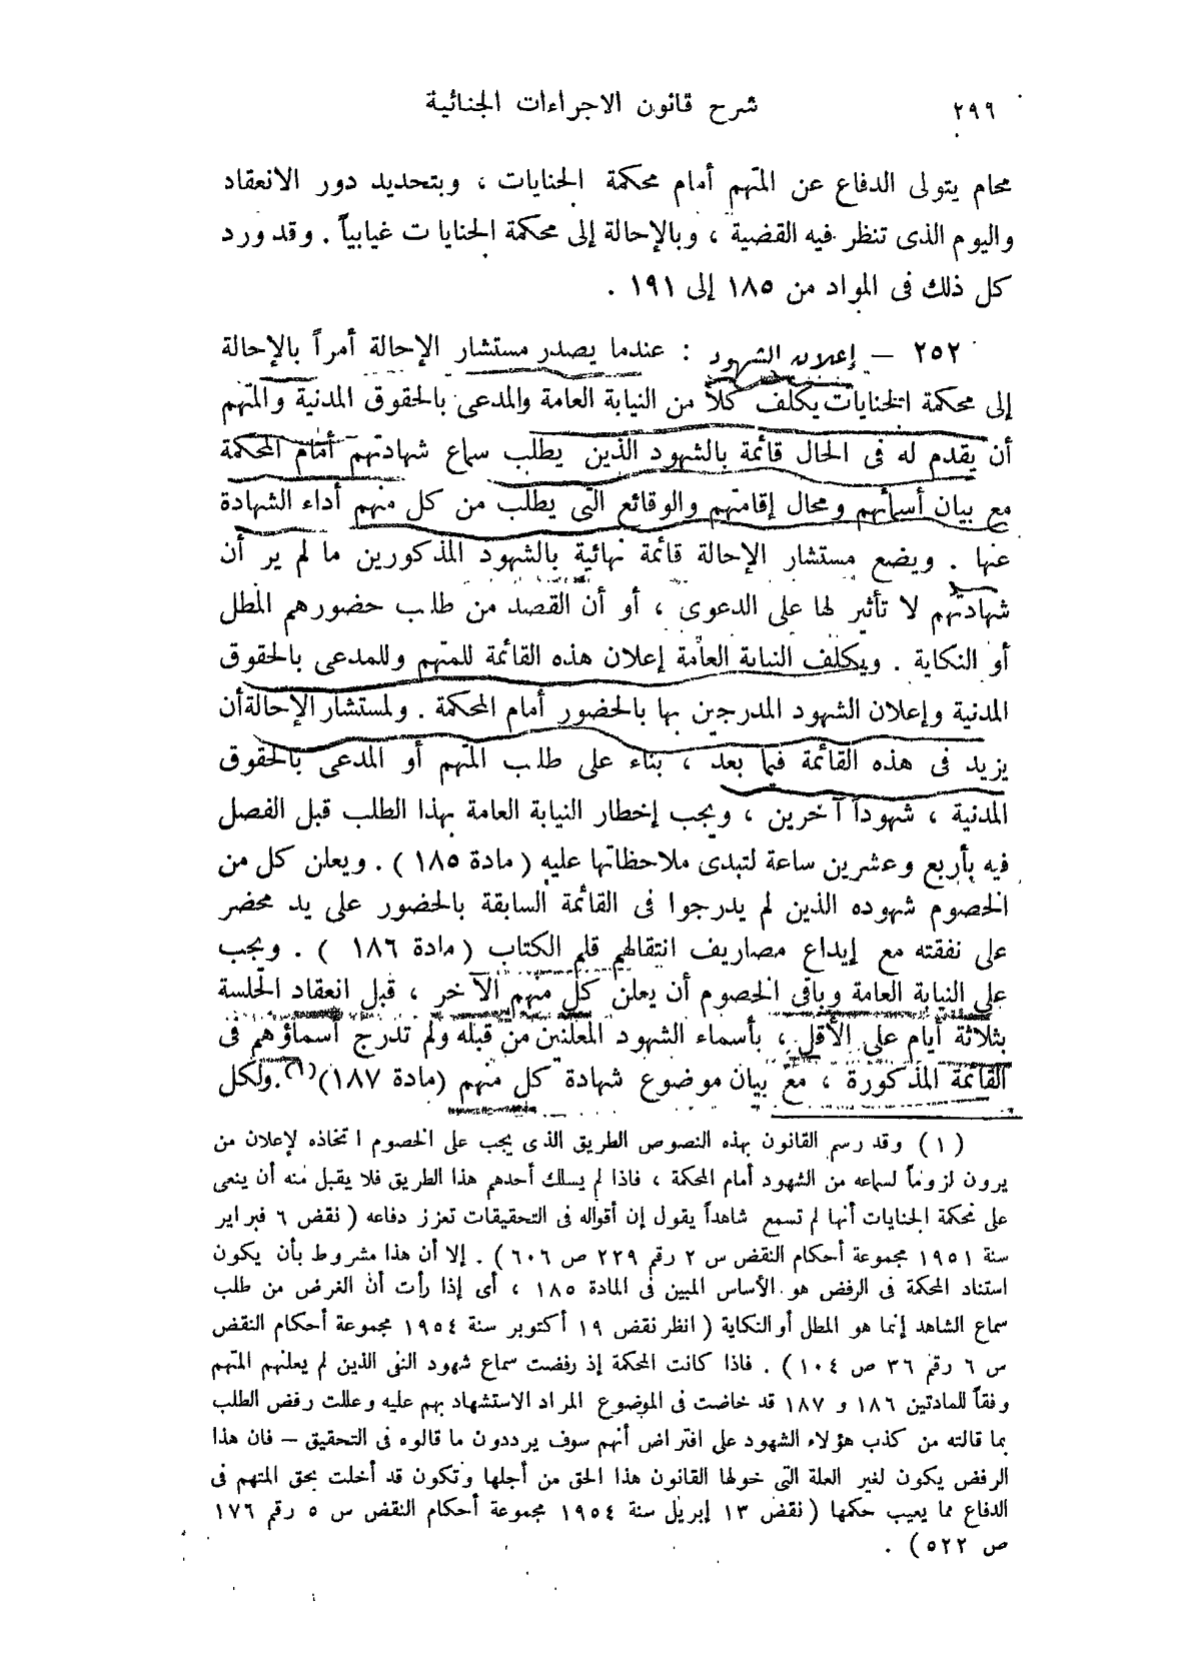 ٢٩٩
شرح قانون الاجراءات الجنائية
محام يتولى الدفاع عن المتهم أمام محكمة الجنايات ، وبتحديد دور الانعقاد
واليوم الذى تنظر فيه القضية ، وبالإحالة إلى محكمة الجنايات غيابياً . وقد ورد
كل ذلك فى المواد من ١٨٥ إلى ١٩١ .
٢٥٢ – إعلان الشهود : عندما يصدر مستشار الإحالة أمراً بالإحالة
إلى محكمة الجنايات يكلف كلاً من النيابة العامة والمدعى بالحقوق المدنية والمتهم
أن يقدم له فى الحال قائمة بالشهود الذين يطلب سماع شهادتهم أمام المحكمة
مع بيان أسمائهم ومحال إقامتهم والوقائع التى يطلب من كل منهم أداء الشهادة
عنها . ويضع مستشار الإحالة قائمة نهائية بالشهود المذكورين ما لم ير أن
شهادتهم لا تأثير لها على الدعوى ، أو أن القصد من طلب حضورهم المطل
أو النكاية . ويكلف النيابة العامة إعلان هذه القائمة للمتهم وللمدعى بالحقوق
المدنية وإعلان الشهود المدرجين بها بالحضور أمام المحكمة . ولمستشار الإحالة أن
يزيد فى هذه القائمة فيما بعد ، بناء على طلب المتهم أو المدعى بالحقوق
المدنية ، شهوداً آخرين ، ويجب إخطار النيابة العامة بهذا الطلب قبل الفصل
فيه بأربع وعشرين ساعة لتبدى ملاحظاتها عليه ( مادة ١٨٥ ) . ويعلن كل من
الخصوم شهوده الذين لم يدرجوا فى القائمة السابقة بالحضور على يد محضر
على نفقته مع إيداع مصاريف انتقالهم قلم الكتاب ( مادة ١٨٦ ) . ويجب
على النيابة العامة وباقى الخصوم أن يعلن كل منهم الآخر ، قبل انعقاد الجلسة
بثلاثة أيام على الأقل ، بأسماء الشهود المعلنين من قبله ولم تدرج أسماؤهم فى
القائمة المذكورة ، مع بيان موضوع شهادة كل منهم (مادة ١٨٧)(١). ولكل
( ١ ) وقد رسم القانون بهذه النصوص الطريق الذى يجب على الخصوم اتخاذه لإعلان من
يرون لزوماً لسماعه من الشهود أمام المحكمة ، فاذا لم يسلك أحدهم هذا الطريق فلا يقبل منه أن ينعى
على محكمة الجنايات أنها لم تسمع شاهداً يقول إن أقواله فى التحقيقات تعزز دفاعه ( نقض ٦ فبراير
سنة ١٩٥١ مجموعة أحكام النقض س ٢ رقم ٢٢٩ ص ٦٠٦ ) . إلا أن هذا مشروط بأن يكون
استناد المحكمة فى الرفض هو الأساس المبين فى المادة ١٨٥ ، أى إذا رأت أن الغرض من طلب
سماع الشاهد إنما هو المطل أو النكاية ( انظر نقض ١٩ أكتوبر سنة ١٩٥٤ مجموعة أحكام النقض
س ٦ رقم ٣٦ ص ١٠٤ ) . فاذا كانت المحكمة إذ رفضت سماع شهود النفى الذين لم يعلنهم المتهم
وفقاً للمادتين ١٨٦ و ١٨٧ قد خاضت فى الموضوع المراد الاستشهاد بهم عليه وعللت رفض الطلب
بما قالته من كذب هؤلاء الشهود على افتراض أنهم سوف يرددون ما قالوه فى التحقيق – فان هذا
الرفض يكون لغير العلة التى خولها القانون هذا الحق من أجلها وتكون قد أخلت بحق المتهم فى
الدفاع مما يعيب حكمها ( نقض ١٣ إبريل سنة ١٩٥٤ مجموعة أحكام النقض س ٥ رقم ١٧٦
ص ٥٢٢ ) .